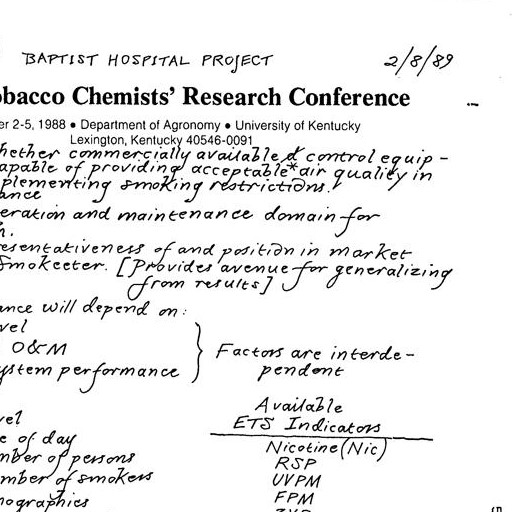 BAPTIST HOSPITAL PROJECT 2/8/89
obacco Chemists' Research Conference
er 2-5, 1988 • Department of Agronomy • University of Kentucky
Lexington, Kentucky 40546-0091
hether commercially available control equip-
apable of providing acceptable* air quality in
plementing smoking restrictions.
ance
eration and maintenance domain for
n.
esentativeness of and position in market
Smokeeter. [Provides avenue for generalizing
from results]
ance will depend on:
vel
O&M
ystem performance
Factors are interde-
pendent
Available
ETS Indicators
vel
e of day
mber of persons
mber of smokers
mographics
Nicotine (Nic)
RSP
UVPM
FPM